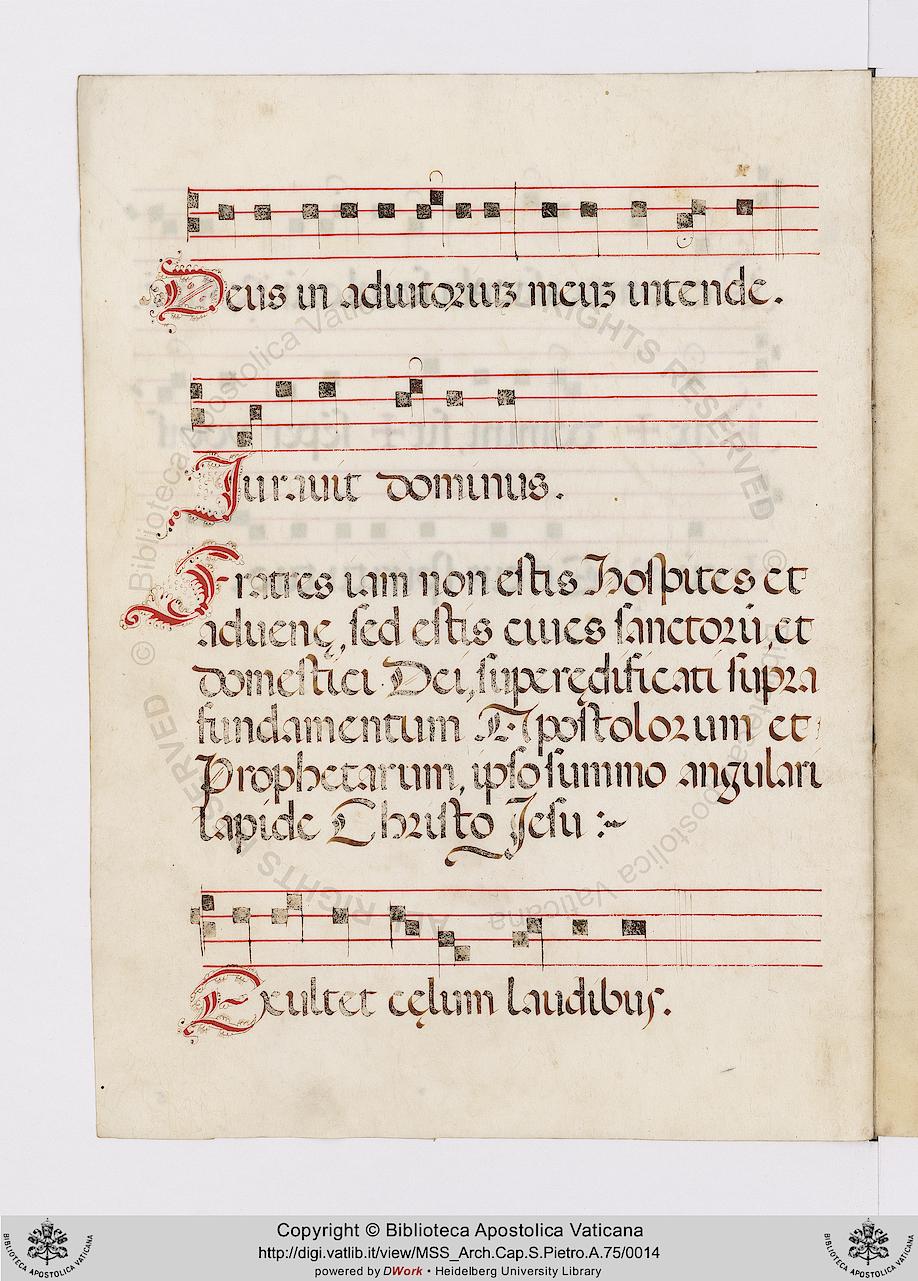 Deus in adiutoriuʒ meuʒ intende.
Iurauit dominus.
Fratres iam non estis Hospites et
aduenę, sed estis ciues sanctorū, et
domestici Dei, superędificati supra
fundamentum Apostolorum et
Prophetarum, ipso summo angulari
lapide Christo Jesu :~
Exultet cęlum laudibus.
© Biblioteca Apostolica Vaticana
ALL RIGHTS RESERVED
BIBLIOTECA APOSTOLICA VATICANA
Copyright © Biblioteca Apostolica Vaticana
http://digi.vatlib.it/view/MSS_Arch.Cap.S.Pietro.A.75/0014
powered by DWork • Heidelberg University Library
BIBLIOTECA APOSTOLICA VATICANA